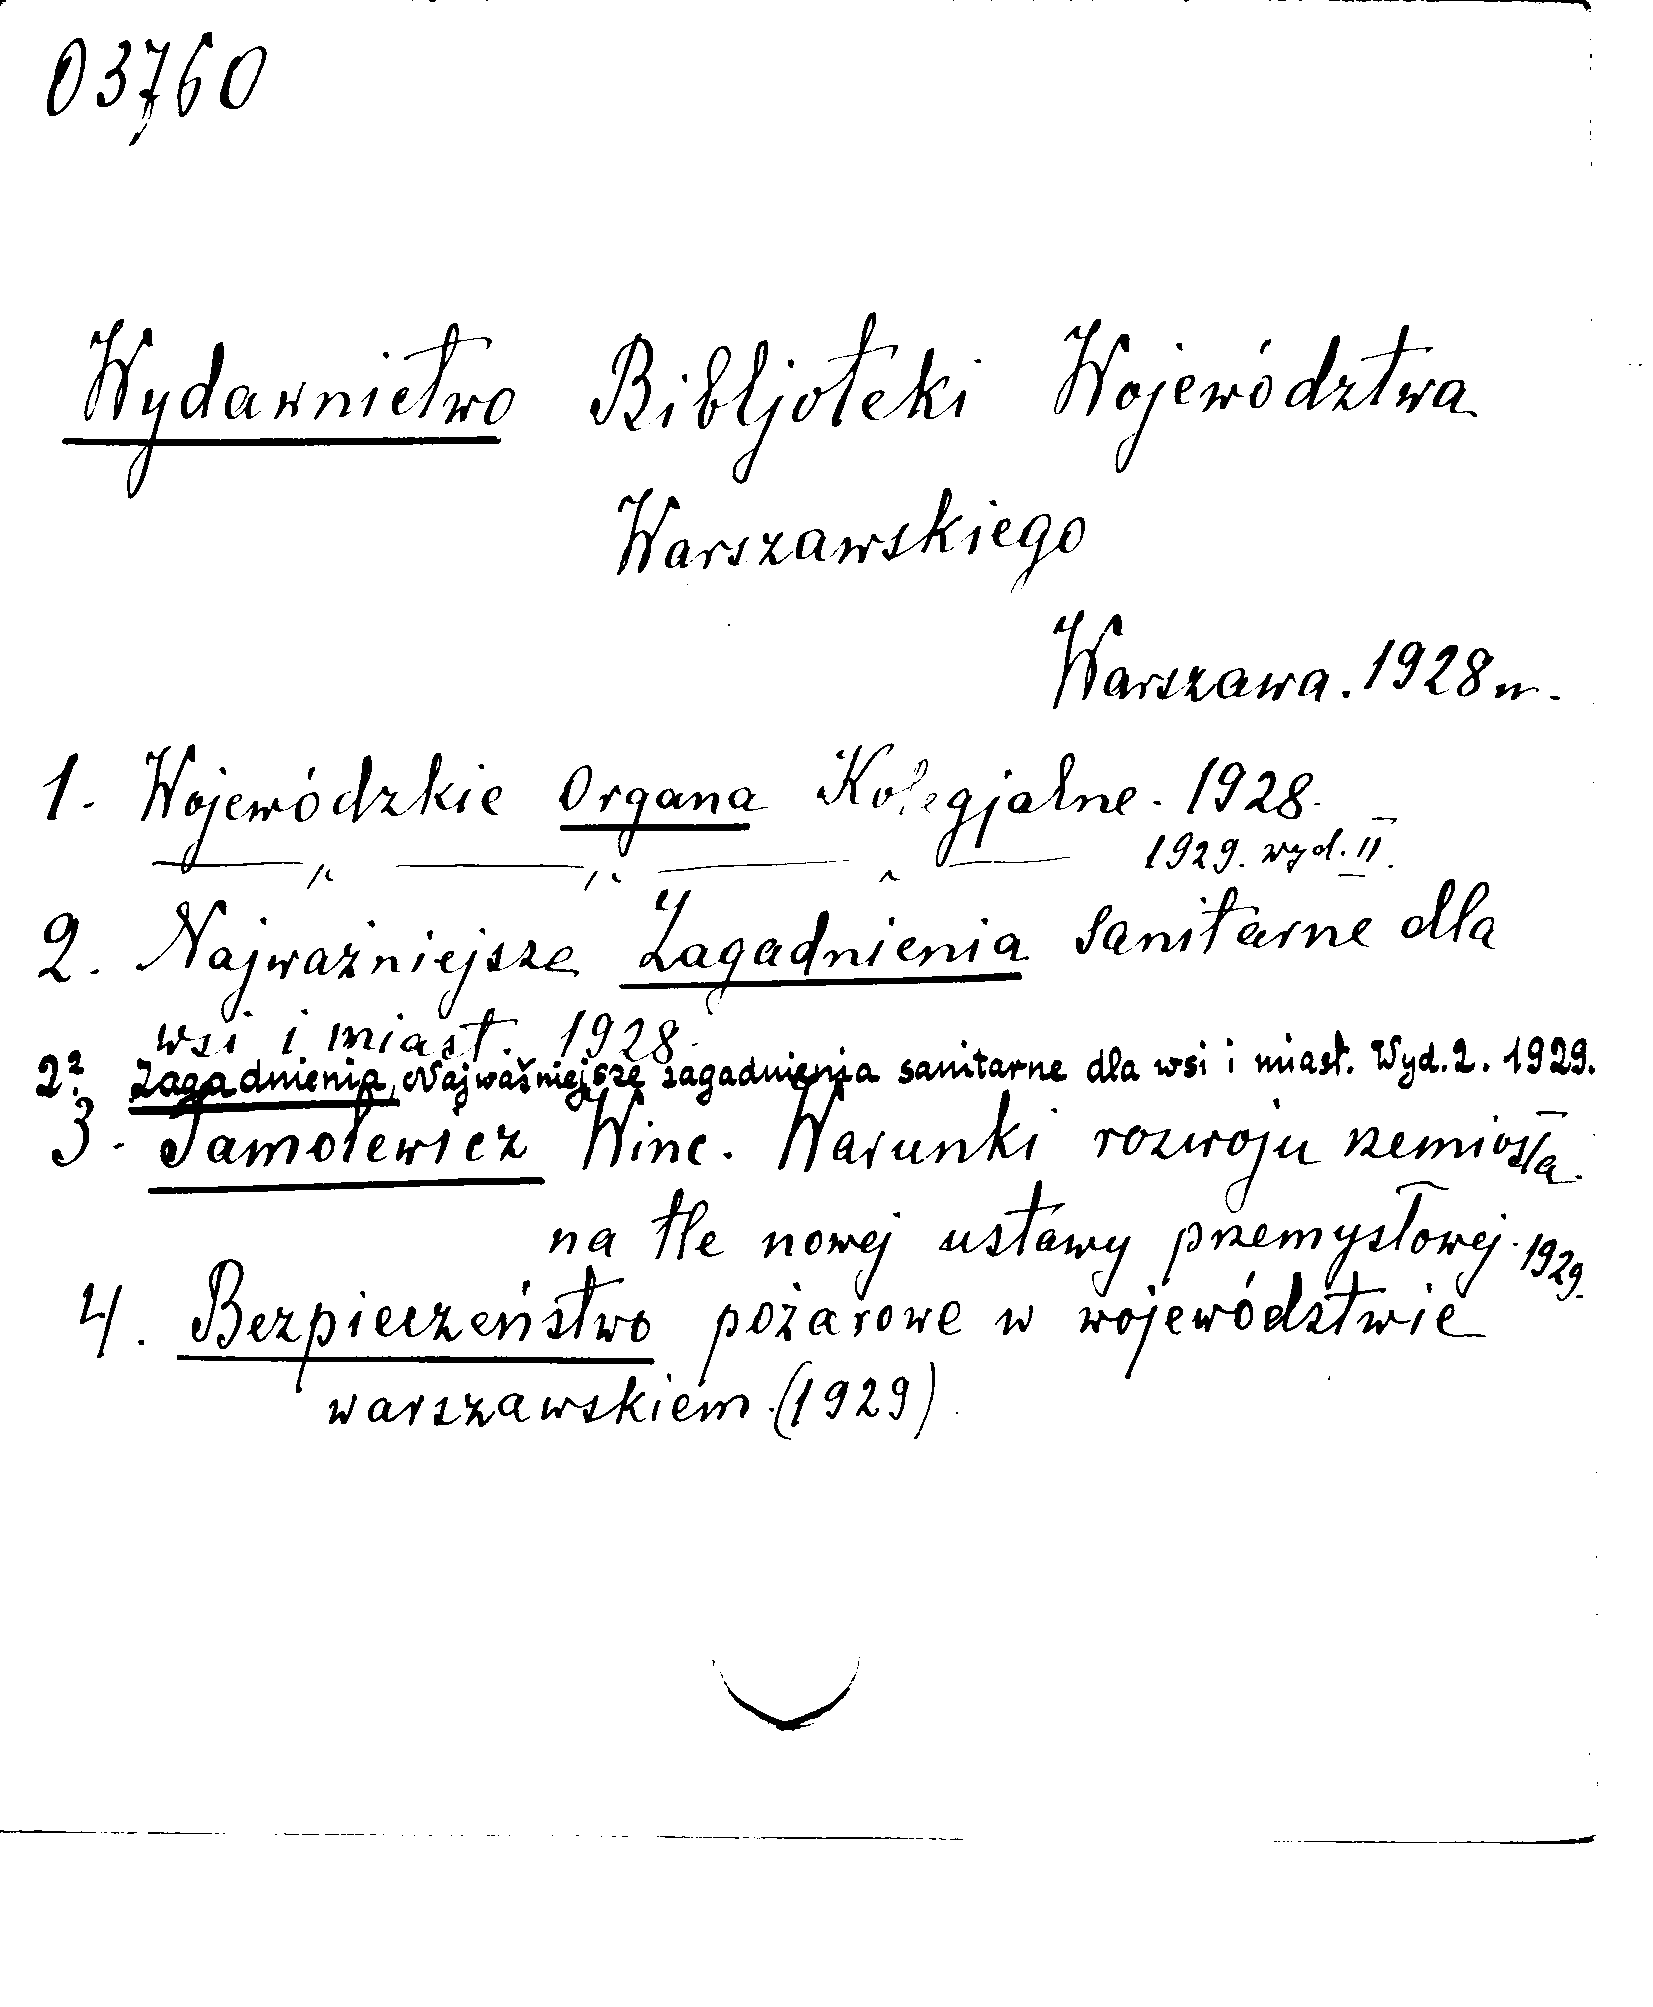 03760
Wydawnictwo Bibljoteki Województwa
Warszawskiego
Warszawa. 1928 n.
1. Wojewódzkie Organa Kolegjalne. 1928.
—〃— —〃— —〃— 1929. wyd. II.
2. Najważniejsze Zagadnienia sanitarne dla
wsi i miast. 1928.
2². Zagadnienia, Najważniejsze zagadnienia sanitarne dla wsi i miast. Wyd. 2. 1929.
3. Jamolewicz Winc. Warunki rozwoju rzemiosła
na tle nowej ustawy przemysłowej. 1929.
4. Bezpieczeństwo pożarowe w województwie
warszawskiem. (1929)